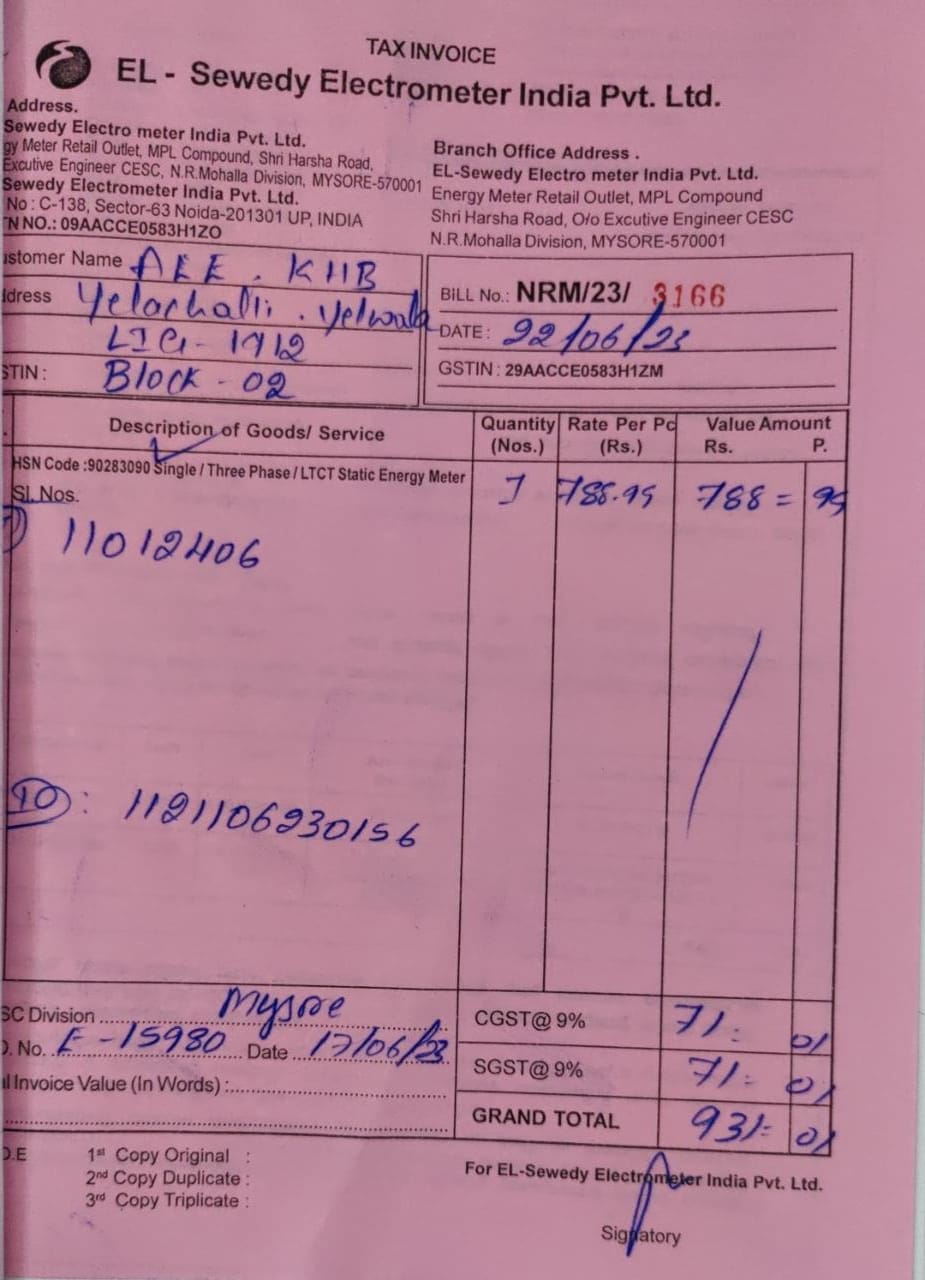 TAX INVOICE
EL - Sewedy Electrometer India Pvt. Ltd.
Address.
Sewedy Electro meter India Pvt. Ltd.
gy Meter Retail Outlet, MPL Compound, Shri Harsha Road,
Excutive Engineer CESC, N.R.Mohalla Division, MYSORE-570001
Sewedy Electrometer India Pvt. Ltd.
No : C-138, Sector-63 Noida-201301 UP, INDIA
N NO.: 09AACCE0583H1ZO
Branch Office Address .
EL-Sewedy Electro meter India Pvt. Ltd.
Energy Meter Retail Outlet, MPL Compound
Shri Harsha Road, O/o Excutive Engineer CESC
N.R.Mohalla Division, MYSORE-570001
ustomer Name AEE . KHB
ddress Yelachalli . Yelwala
LIG - 1912
STIN : Block - 02
BILL No.: NRM/23/ 3166
DATE : 22/06/23
GSTIN : 29AACCE0583H1ZM
Description of Goods/ Service Quantity (Nos.) Rate Per Pc (Rs.) Value Amount Rs. P.
HSN Code :90283090 Single / Three Phase / LTCT Static Energy Meter 1 788.99 788 = 99
Sl. Nos.
1) 11012406
TO : 1121106230156
SC Division Mysore
O. No. E - 15980 Date 17/06/23
l Invoice Value (In Words) :
CGST@ 9% 71. 01
SGST@ 9% 71. 01
GRAND TOTAL 931. 01
O.E 1st Copy Original :
2nd Copy Duplicate :
3rd Copy Triplicate :
For EL-Sewedy Electrometer India Pvt. Ltd.
Signatory